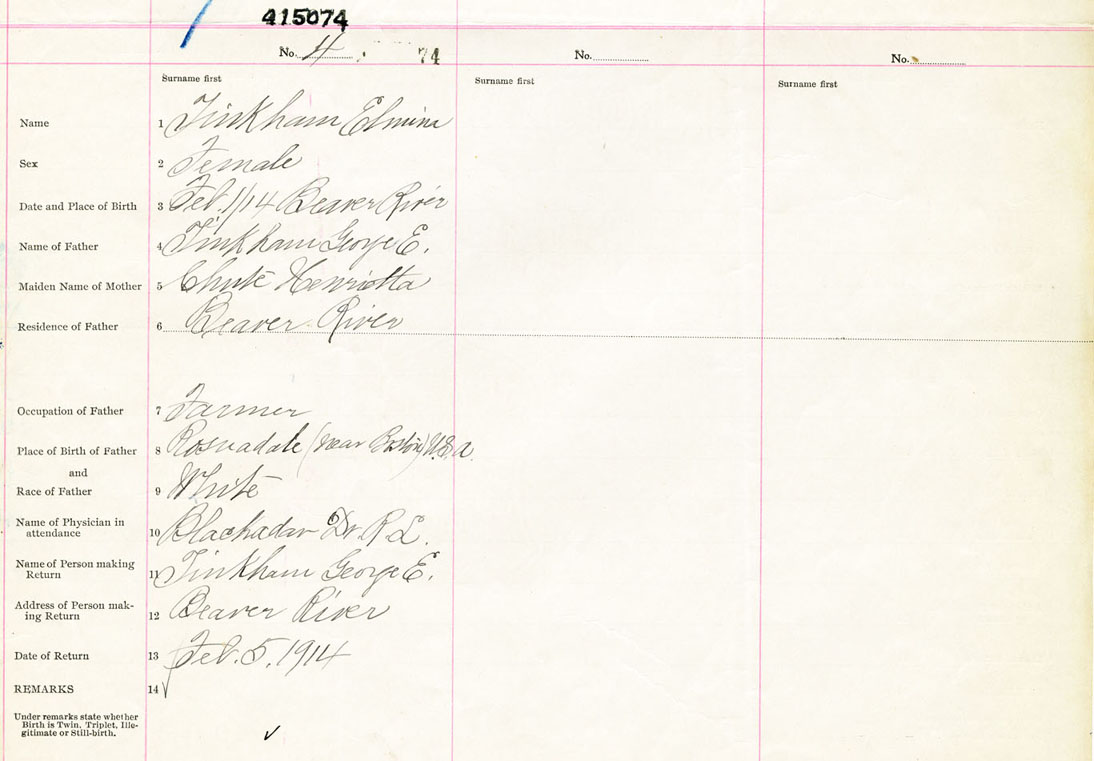 415074
No. 4 74 No. No.
Surname first Surname first Surname first
Name 1 Tinkham Elmina
Sex 2 Female
Date and Place of Birth 3 Feb. 1/14 Beaver River
Name of Father 4 Tinkham George E.
Maiden Name of Mother 5 Chute Henrietta
Residence of Father 6 Beaver River
Occupation of Father 7 Farmer
Place of Birth of Father 8 (near Boston) U.S.A.
and
Race of Father 9 White
Name of Physician in
attendance 10 Blackadar Dr R L.
Name of Person making
Return 11 Tinkham George E.
Address of Person mak-
ing Return 12 Beaver River
Date of Return 13 Feb. 5, 1914
REMARKS 14
Under remarks state whether
Birth is Twin, Triplet, Ille-
gitimate or Still-birth.